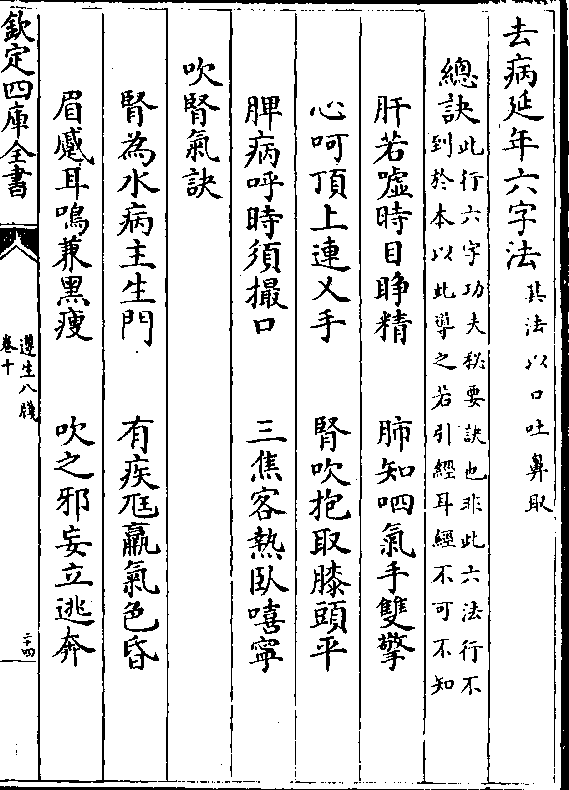 去病延年六字法其法以口吐鼻取
總訣此行六字功夫秘要訣也非此六法行不
到於本以此導之若引經耳經不可不知
肝若噓時目睜精　肺知呬氣手雙擎
心呵頂上連乂手　腎吹抱取膝頭平
脾病呼時須撮口　三焦客熱臥嘻寧
吹腎氣訣
腎為水病主生門　有疾尫羸氣色昏
眉蹙耳鳴兼黑瘦　吹之邪妄立逃奔
欽定四庫全書
遵生八牋
卷十
二十四